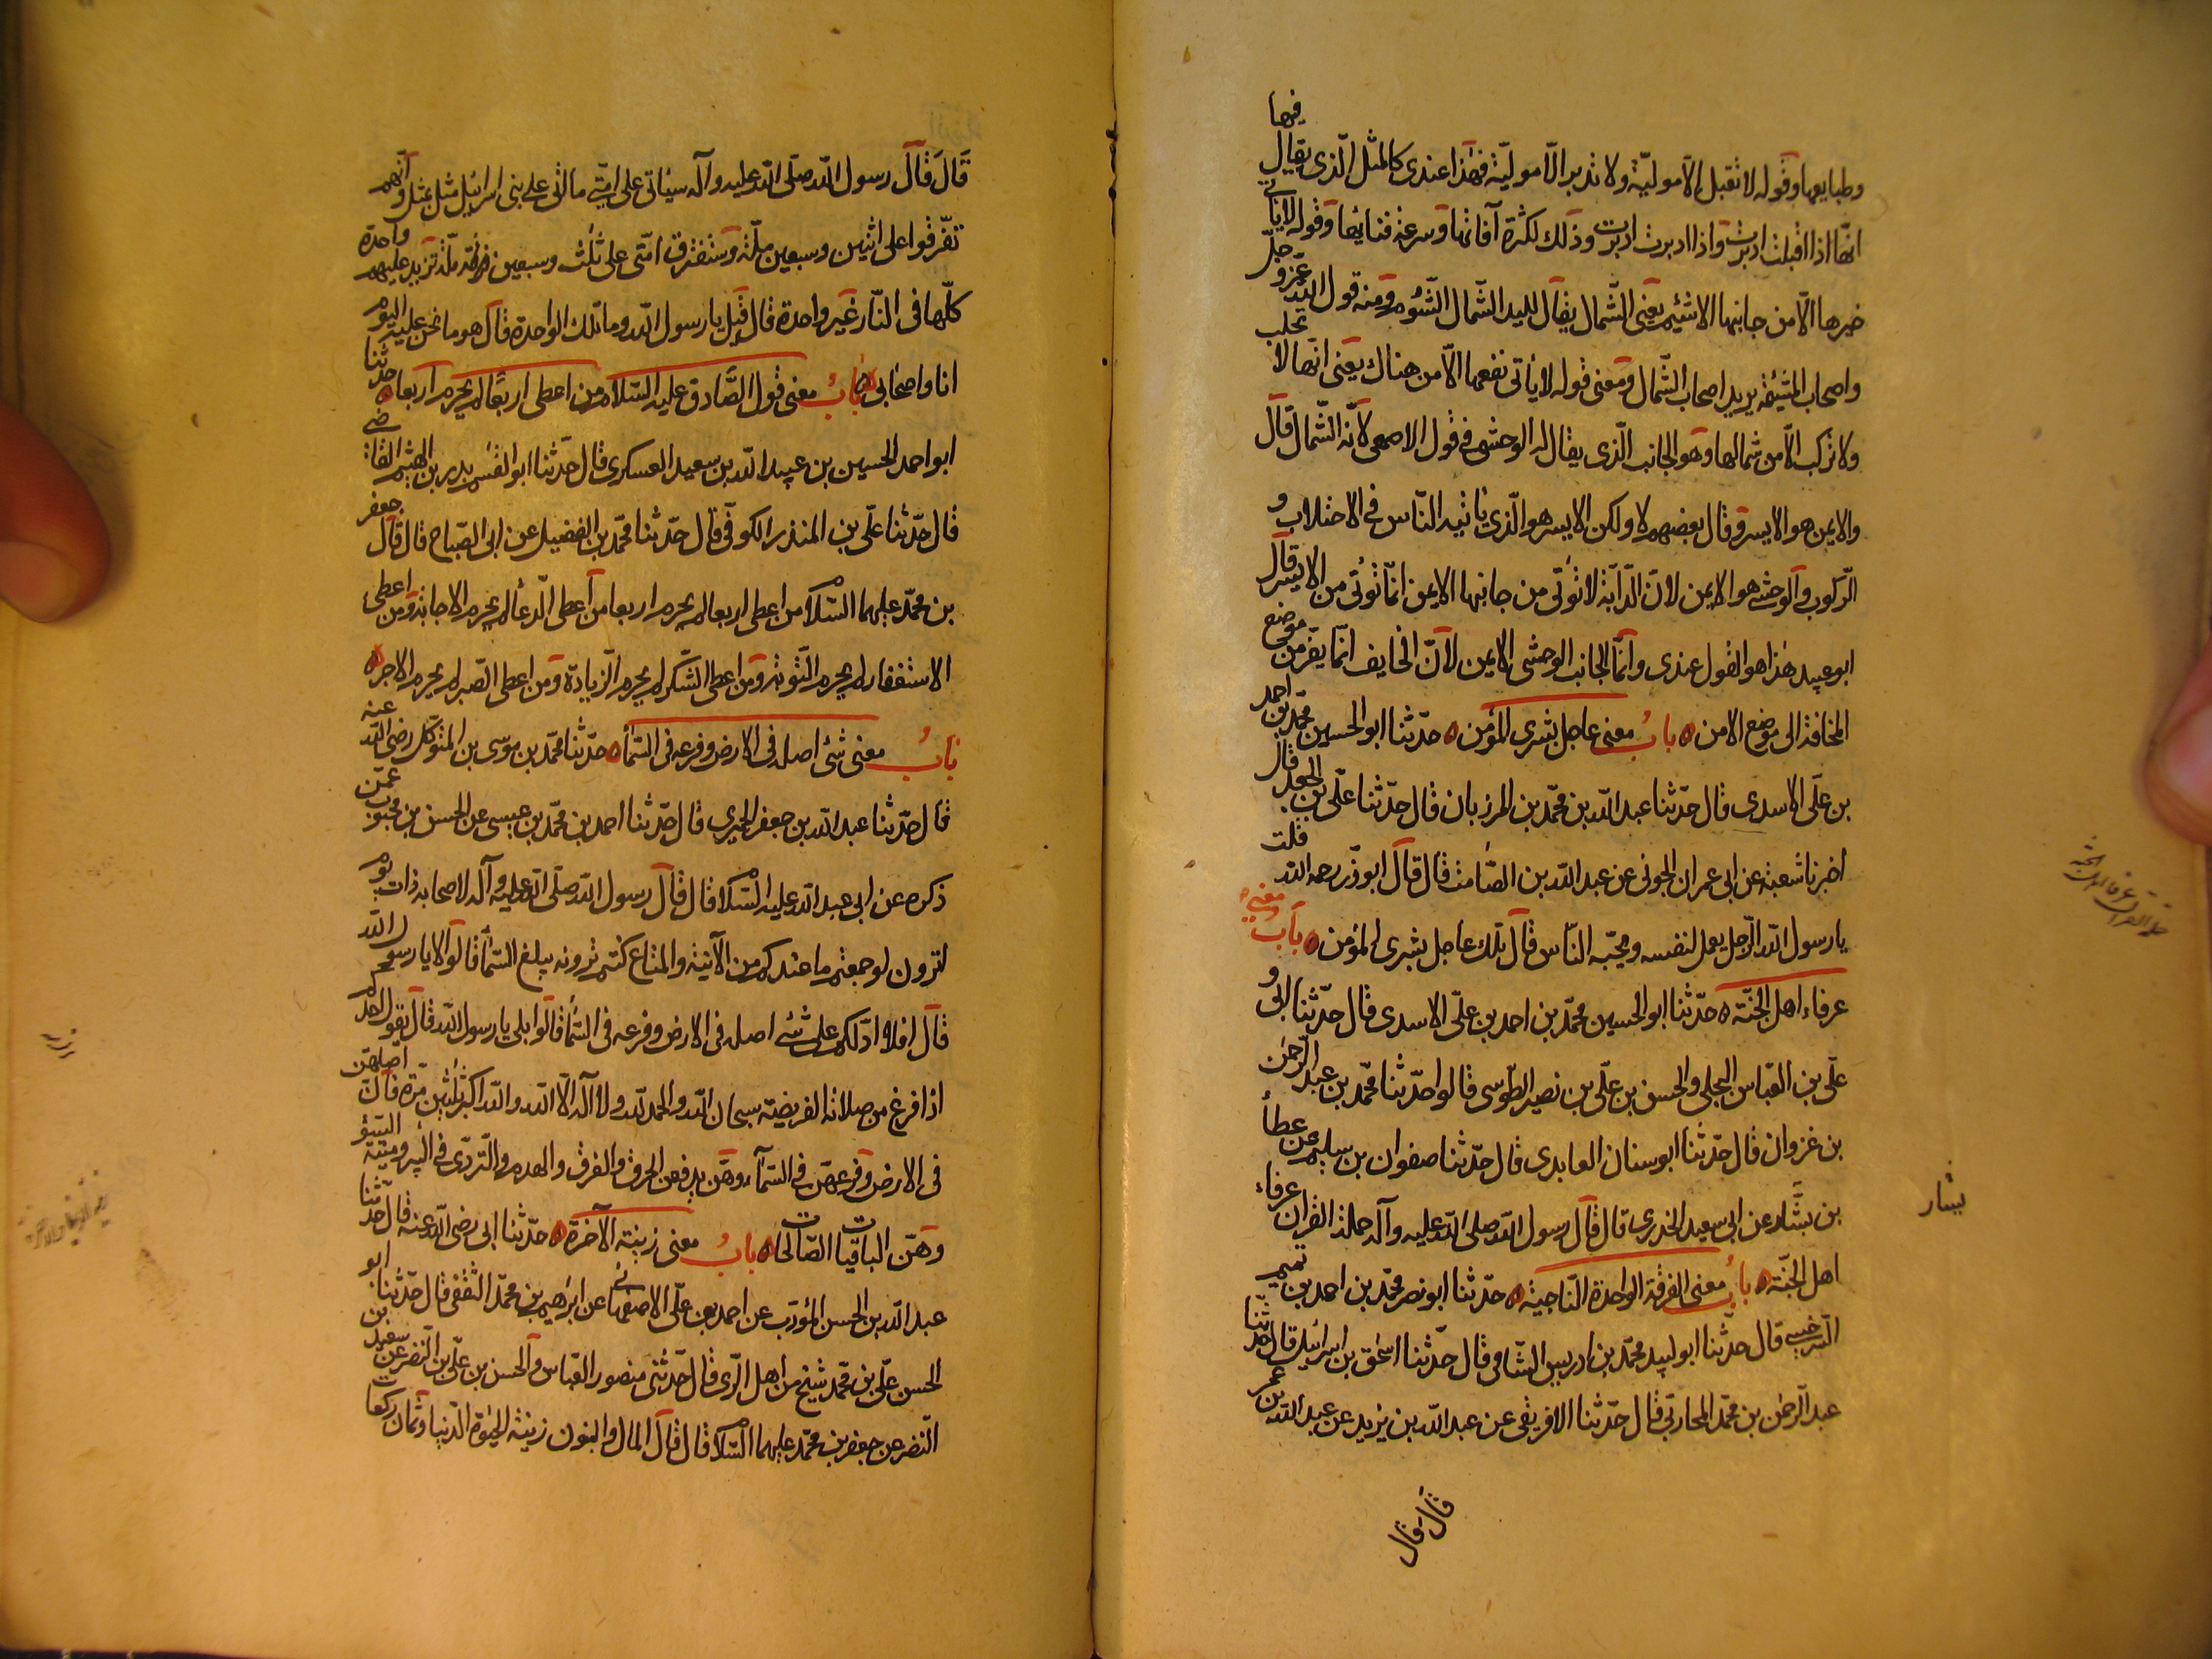 وطبايعها وقوله لا تقبل الّا موليّة ولا تدبر الّا موليّة فهذا عندى كالمثل الّذى يقال فيها
انّها اذا اقبلت ادبرت واذا ادبرت ادبرت وذلك لكثرة آفاتها وسرعة فنائها وقوله لا ياتى
خيرها الّا من جانبها الاشئم يعنى الشّمال يقال لليد الشّمال الشّؤم ومنه قول الله عزّ وجلّ
واصحاب المشئمة يريد اصحاب الشّمال ومعنى قوله لا ياتى نفعها الّا من هناك يعنى انّها لا تحلب
ولا تركب الّا من شمالها وهو الجانب الّذى يقال له الوحشى فى قول الاصمعى لانّه الشّمال قال
والايمن هو الايسر وقال بعضهم لا ولكن الايسر هو الّذى ياتيه النّاس فى الاحتلاب و
الرّكوب والوحشى هو الايمن لانّ الدّابّة لا تؤتى من جانبها الايمن انّما تؤتى من الايسر قال
ابو عبيد هذا هو القول عندى وانّما الجانب الوحشى الايمن لانّ الخايف انّما يفرّ من موضع
المخافة الى موضع الامن باب معنى عاجل بشرى المؤمن حدّثنا ابو الحسين محمّد بن احمد
بن علّى الاسدى قال حدّثنا عبد الله بن محمّد بن المرزبان قال حدّثنا علّى بن الجعد قال
اخبرنا شعبة عن ابى عمران الجونى عن عبد الله بن الصّامت قال قال ابو ذّر رحمه الله قلت
يا رسول الله الرّجل يعمل لنفسه ويحبّه النّاس قال تلك عاجل بشرى المؤمن باب معنى
عرفاء اهل الجنّة حدّثنا ابو الحسين محمّد بن احمد بن علّى الاسدى قال حدّثنا ابى و
علّى بن العبّاس البجلى والحسن بن علّى بن نصير الطّوسى قالوا حدّثنا محمّد بن عبد الرّحمن
بن غزوان قال حدّثنا ابو سنان العابدى قال حدّثنا صفوان بن سليم عن عطاء
بن بشّار عن ابى سعيد الخدرى قال قال رسول الله صلى الله عليه وآله حملة القران عرفاء
يسار
اهل الجنّة باب معنى الفرقة الواحدة النّاجية حدّثنا ابو نصر محمّد بن احمد بن تميم
السّرخسى قال حدّثنا ابو لبيد محمّد بن ادريس الشّامى قال حدّثنا اسحق بن اسرائيل قال حدّثنا
عبد الرّحمن بن محمّد المحاربى قال حدّثنا الافريقى عن عبد الله بن يزيد عن عبد الله بن عمر
قال قال
قَالَ قَالَ رسول الله صلّى الله عليه وآله سيأتى على امّتى ما اتى على بنى اسرائيل مثل بمثل وانّهم
تفّرقوا على اثنين وسبعين ملّة وستفترق امّتى على ثلث وسبعين ملّة تزيد عليهم واحدة
كلّها فى النّار غير واحدة قال قيل يا رسول الله وما تلك الواحدة قال هو ما نحن عليه اليوم
انا واصحابى باب معنى قول الصّادق عليه السّلام من اعطى اربعًا لم يحرم اربعا حدّثنا
ابو احمد الحسين بن عبيد الله بن سعيد العسكرى قال حدّثنا ابو القسم بدر بن الهيثم القاضى
قال حدّثنا علّى بن المنذر الكوفى قال حدّثنا محمّد بن الفضيل عن ابى الصّباح قال قال جعفر
بن محمّد عليهما السّلام من اعطى اربعا لم يحرم اربعا من اعطى الدّعا لم يحرم الاجابة ومن اعطى
الاستغفار لم يحرم التّوبة ومن اعطى الشّكر لم يحرم الزّيادة ومن اعطى الصّبر لم يحرم الاجر
باب معنى شئ اصله فى الارض وفرعه فى السّماء حدّثنا محمّد بن موسى بن المتوكّل رضى الله عنه
قال حدّثنا عبد الله بن جعفر الحميرى قال حدّثنا احمد بن محمّد بن عيسى عن الحسن بن محبوب عمّن
ذكره عن ابى عبد الله عليه السّلام قال قال رسول الله صلّى الله عليه وآله لاصحابه ذات يوم
اترون لو جمعتم ما عندكم من الآنية والمتاع كنتم ترونه يبلغ السّماء قالوا لا يا رسول الله
قال افلا ادّلكم على شئ اصله فى الارض وفرعه فى السّماء قالوا بلى يا رسول الله قال يقول احدكم
اذا فرغ من صلاته الفريضة سبحان الله والحمد لله ولا اله الّا الله والله اكبر ثلثين مرّة فانّ اصلهنّ
فى الارض وفرعهنّ فى السّماء وهنّ يدفعن الحرق والغرق والهدم والتّردّى فى البئر وميتة السّوء
وهنّ الباقيات الصّالحات باب معنى زينة الآخرة حدّثنا ابى رضى الله عنه قال حدّثنا
عبد الله بن الحسن المؤدّب عن احمد بن علّى الاصفهانى عن ابرهيم بن محمّد الثّقفى قال حدّثنا ابو
الحسن علّى بن محمّد شيخ من اهل الرّى قال حدّثنى منصور العبّاس والحسن بن علّى بن النّضر عن سعيد بن
النّضر عن جعفر بن محمّد عليهما السّلام قال قال المال والبنون زينة الحيوة الدّنيا وثمان ركعات